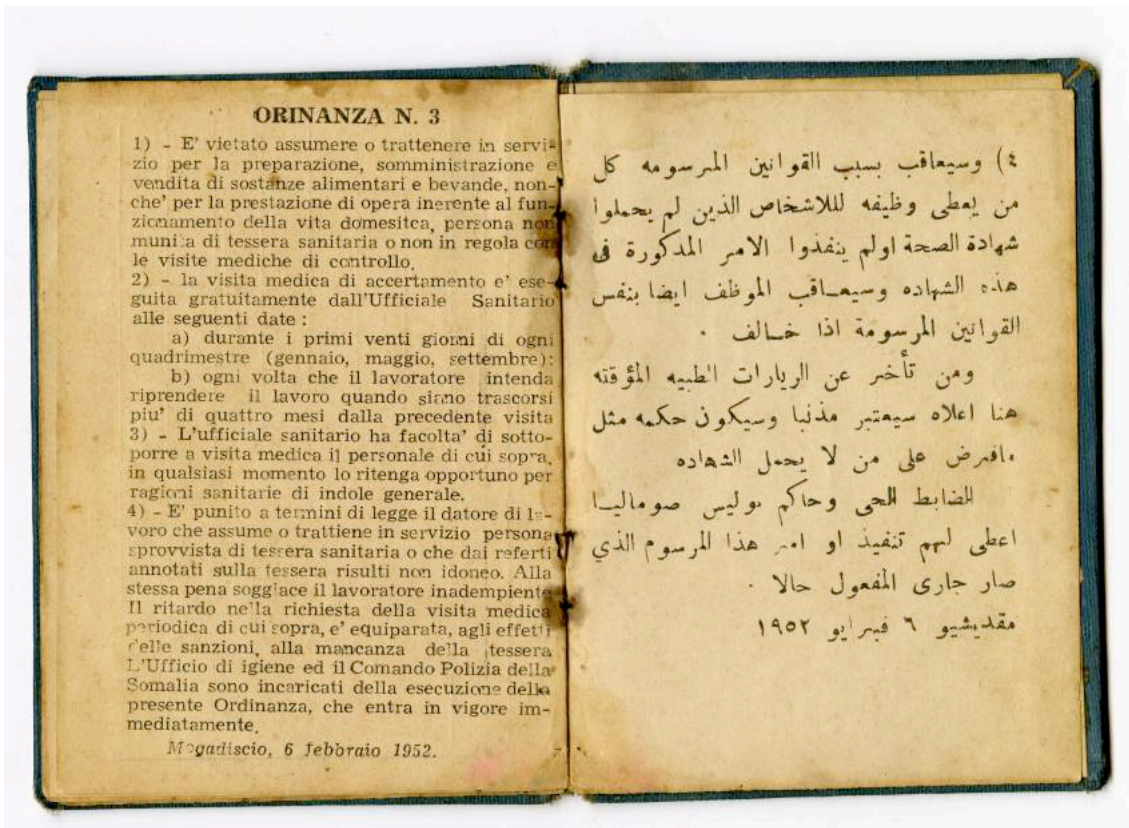 ORINANZA N. 3
1) - E' vietato assumere o trattenere in servi-
zio per la preparazione, somministrazione e
vendita di sostanze alimentari e bevande, non-
che' per la prestazione di opera inerente al fun-
zionamento della vita domesitca, persona non
munita di tessera sanitaria o non in regola con
le visite mediche di controllo.
2) - la visita medica di accertamento e' ese-
guita gratuitamente dall'Ufficiale Sanitario
alle seguenti date :
a) durante i primi venti giorni di ogni
quadrimestre (gennaio, maggio, settembre):
b) ogni volta che il lavoratore intenda
riprendere il lavoro quando siano trascorsi
piu' di quattro mesi dalla precedente visita
3) - L'ufficiale sanitario ha facolta' di sotto-
porre a visita medica il personale di cui sopra,
in qualsiasi momento lo ritenga opportuno per
ragioni sanitarie di indole generale.
4) - E' punito a termini di legge il datore di la-
voro che assume o trattiene in servizio persona
sprovvista di tessera sanitaria o che dai referti
annotati sulla tessera risulti non idoneo. Alla
stessa pena soggiace il lavoratore inadempiente
Il ritardo nella richiesta della visita medica
periodica di cui sopra, e' equiparata, agli effetti
delle sanzioni, alla mancanza della tessera
L'Ufficio di igiene ed il Comando Polizia della
Somalia sono incaricati della esecuzione della
presente Ordinanza, che entra in vigore im-
mediatamente.
Mogadiscio, 6 febbraio 1952.
٤) وسيعاقب بسبب القوانين المرسومه كل
من يعطى وظيفه لللاشخاص الذين لم يحملوا
شهادة الصحة اولم ينفذوا الامر المذكورة فى
هذه الشهاده وسيعاقب الموظف ايضا بنفس
القوانين المرسومة اذا خالف ٠
ومن تأخر عن الزيارات الطبيه المؤقته
هنا اعلاه سيعتبر مذنبا وسيكون حكمه مثل
مافرض على من لا يحمل الشهاده
الضابط الصحى وحاكم بوليس صوماليا
اعطى لهم تنفيذ او امر هذا المرسوم الذي
صار جارى المفعول حالا ٠
مقديشيو ٦ فبرايو ١٩٥٢